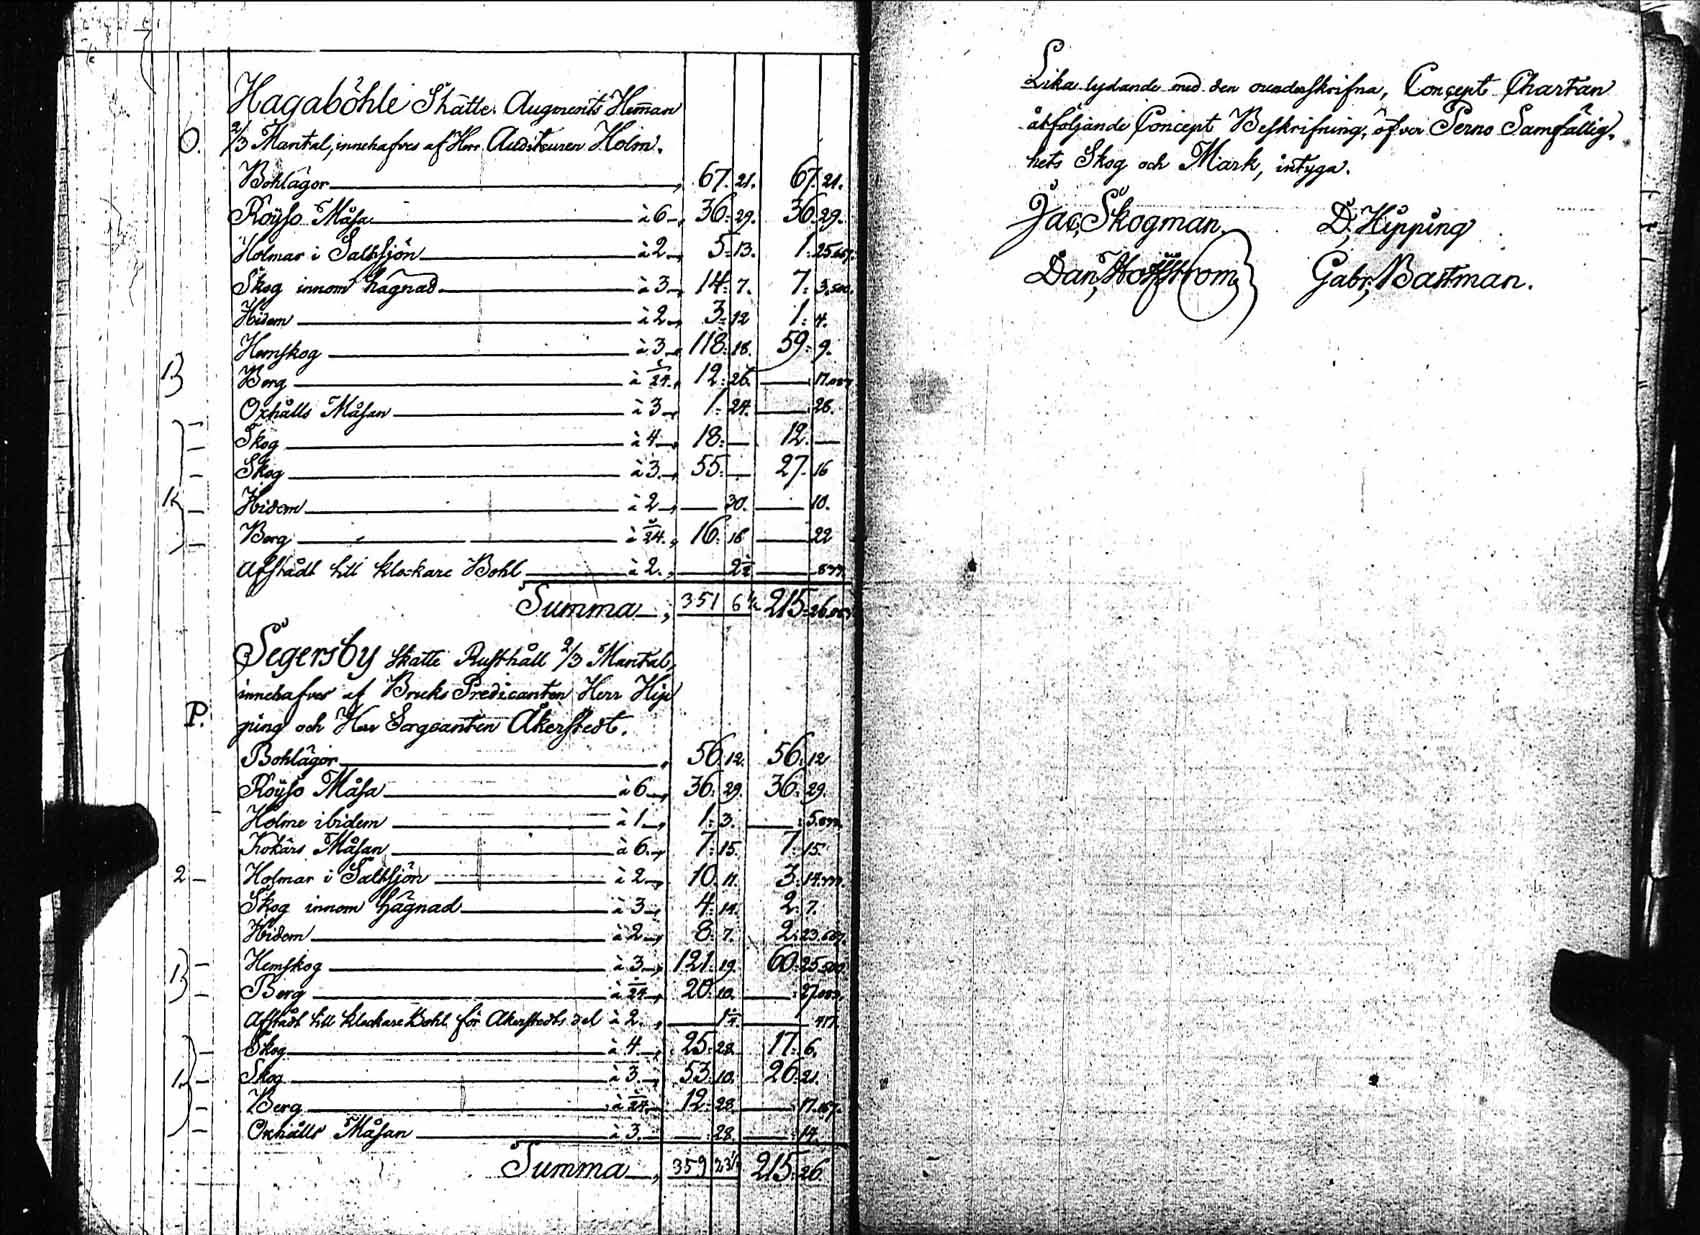 Hagaböhle Skatte Augments Heman
O. 2/3 Mantal, innehafves af Herr Auditeuren Holm.
Bohlägor 67. 21. 67. 21.
Röÿsö Måsa à 6 36. 29. 36. 29.
Holmar i Saltsjön à 2 5. 13. 1. 25.667.
Skog innom hägnad à 3 14. 7. 7. 3.500.
Ibidem à 2 3. 12 1. 4.
Hemskog à 3 118. 18. 59. 9.
B Berg à /24. 12. 26.
Oxhålls Måsan à 3 1. 24. 28.
Skog à 4 18. 12.
Skog à 3. 55. 27. 16
Ibidem à 2 30. 10.
Berg à /24. 16. 16 22
Afstådt till klockare Bohl à 2. 2½
Summa 351 6½ 215.
Segersby Skatte Rusthåll 2/3 Mantal,
innehafves af Bruks Predicanten Herr Hip
P. ping och Herr Sergeanten Åkerstedt.
Bohlägor 56. 12. 56. 12
Röÿsö Måsa à 6 36. 29. 36. 29.
Holme ibidem à 1 1. 3.
Kokärs Måsan à 6. 7. 15. 7. 15.
2 Holmar i Saltsjön à 2 10. 11. 3.
Skog innom hägnad à 3 4. 14. 2. 7.
Ibidem à 2 8. 7. 2. 23.667.
Hemskog à 3 121. 19. 60. 25.500.
B Berg à /24 20. 10.
Afstådt till klockare Bohl för Åkerstedts del à 2. 1¼ 417
Skog à 4 25. 28. 17. 6.
Skog à 3 53. 10. 26. 21.
Berg à /24 12. 28. 17.
Oxhålls Måsan à 3. 28. 14.
Summa 359 23¼ 215. 26.
Lika lydande med den ounderskrifna, Concept Chartan
åtföljande Concept Beskrifning, öfver Perno Samfällig-
hets Skog och Mark, intyga.
Jac, Skogman. D, Hipping
Dan, Hoffström Gabr, Bartman.